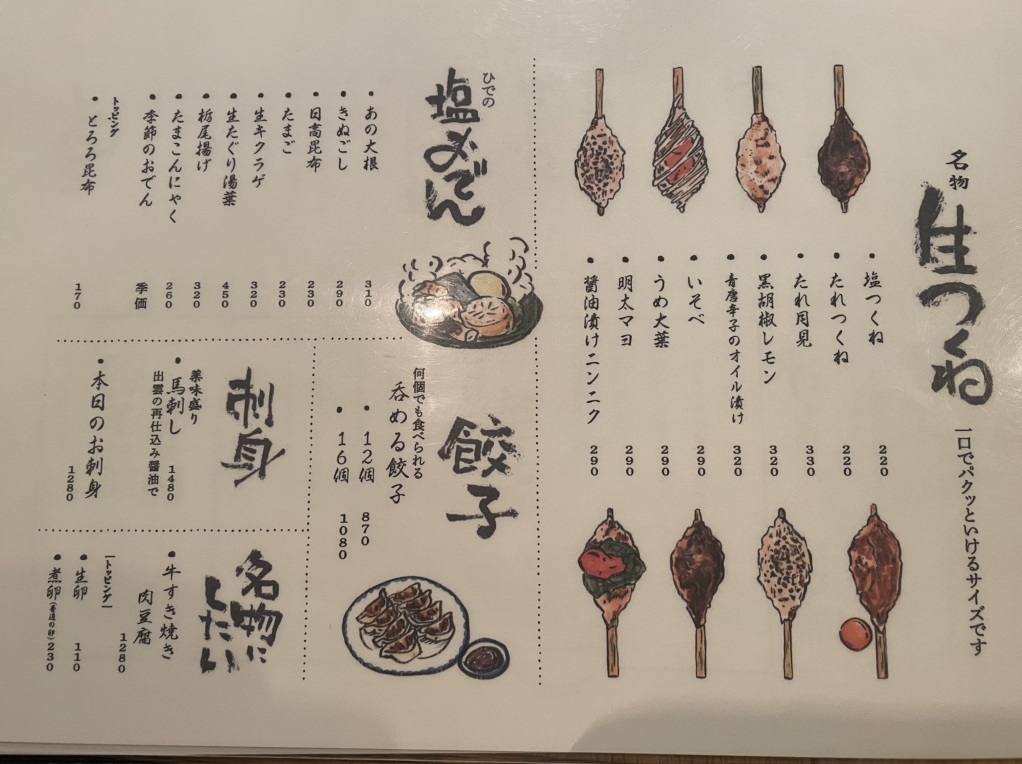 名物
生つくね
一口でパクッといけるサイズです
・塩つくね 220
・たれつくね 220
・たれ月見 330
・黒胡椒レモン 320
・青唐辛子のオイル漬け 320
・いそべ 290
・うめ大葉 290
・明太マヨ 290
・醤油漬けニンニク 290
ひでの
塩おでん
・あの大根 310
・きぬごし 290
・日高昆布 230
・たまご 230
・生キクラゲ 320
・生たぐり湯葉 450
・栃尾揚げ 320
・たまこんにゃく 260
・季節のおでん 季価
トッピング
・とろろ昆布 170
餃子
何個でも食べられる
呑める餃子
・12個 870
・16個 1080
刺身
薬味盛り
・馬刺し 1480
出雲の再仕込み醤油で
・本日のお刺身 1280
名物に
したい
・牛すき焼き
肉豆腐 1280
【トッピング】
・生卵 110
・煮卵(普通の卵) 230